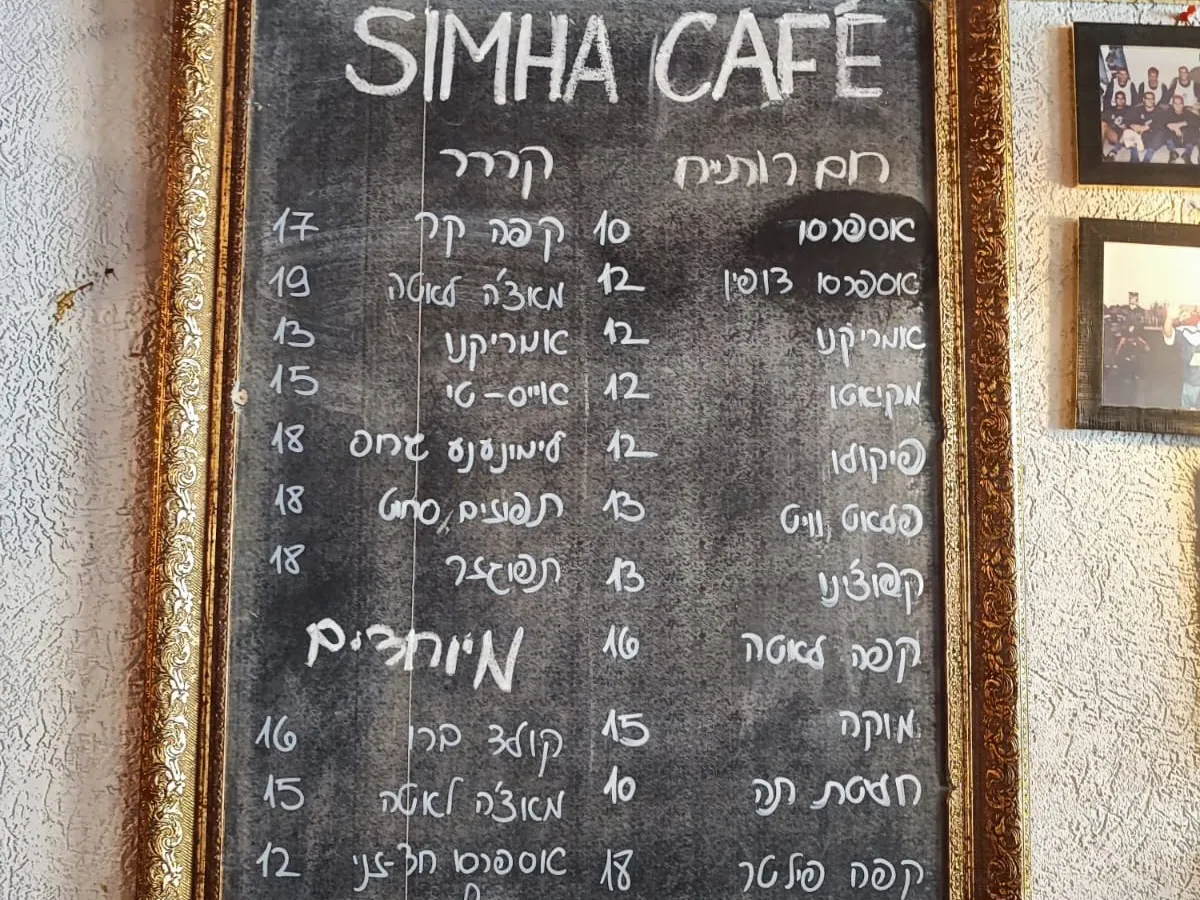 SIMHA CAFÉ
חם רותייח
אספרסו 10
אספרסו דופיו 12
אמריקנו 12
מקיאטו 12
פיקולו 12
פלאט וויט 13
קפוצ'ינו 13
קפה לאטה 16
מוקה 15
חליטת תה 10
קפה פילטר 18
קררר
קפה קר 17
מאצ'ה לאטה 19
אמריקנו 13
אייס-טי 15
לימונענע גרוס 18
תפוזים סחוט 18
תפוגזר 18
מיוחדים
קולד ברו 16
מאצ'ה לאטה 15
אספרסו חד-זני 12